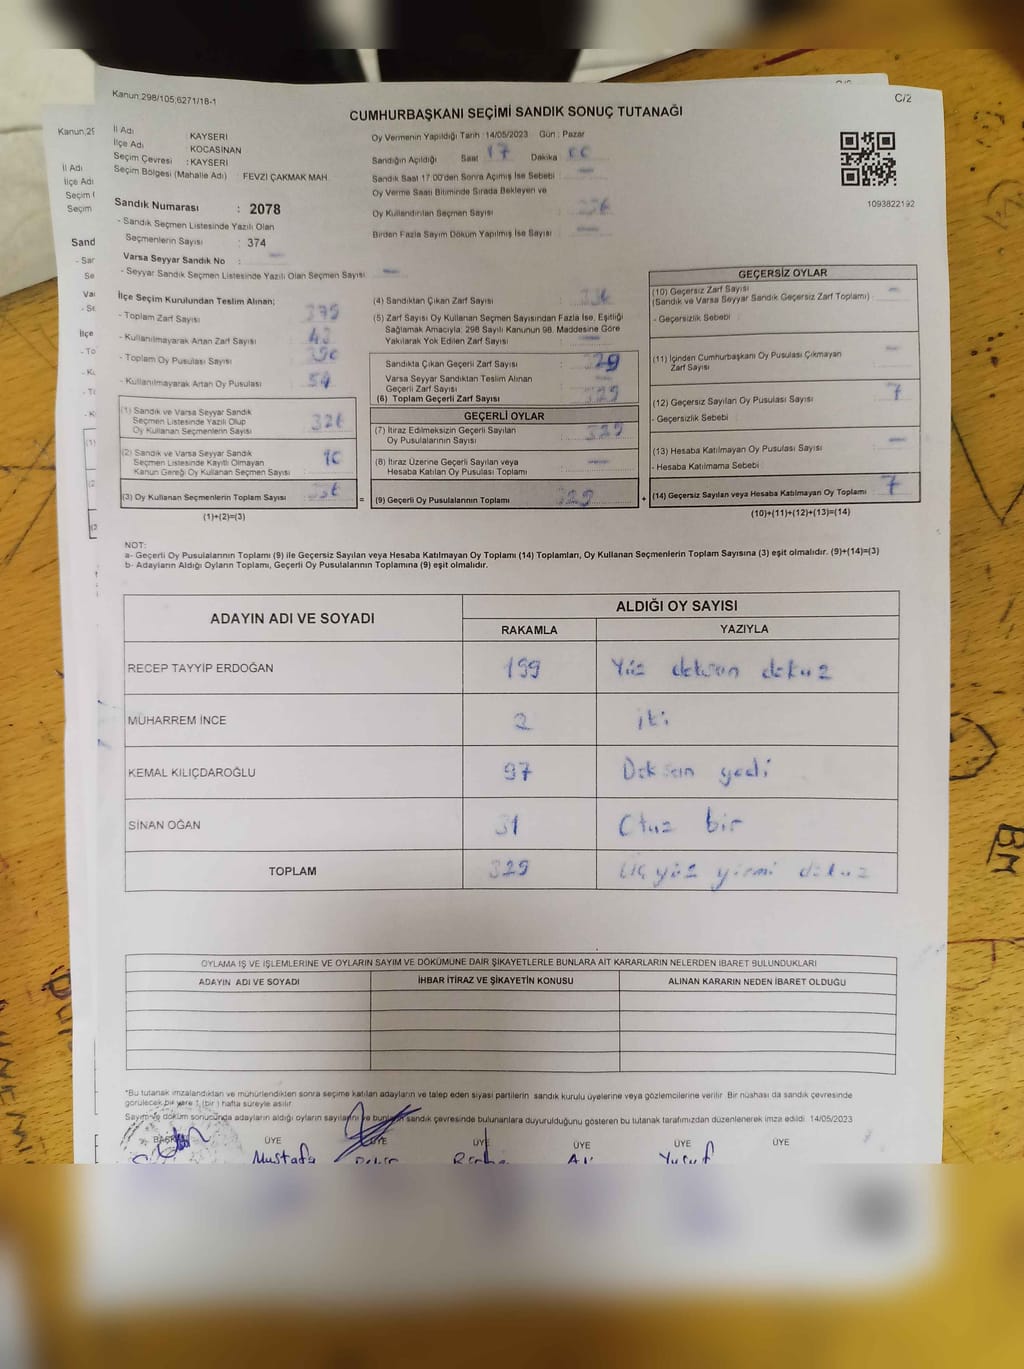 Kanun:298/105;6271/18-1
C/2
CUMHURBAŞKANI SEÇİMİ SANDIK SONUÇ TUTANAĞI
İl Adı KAYSERİ
İlçe Adı KOCASİNAN
Seçim Çevresi : KAYSERİ
Seçim Bölgesi (Mahalle Adı) FEVZİ ÇAKMAK MAH.
Sandık Numarası : 2078
- Sandık Seçmen Listesinde Yazılı Olan
Seçmenlerin Sayısı : 374
Varsa Seyyar Sandık No : -
- Seyyar Sandık Seçmen Listesinde Yazılı Olan Seçmen Sayısı -
Oy Vermenin Yapıldığı Tarih :14/05/2023 Gün : Pazar
Sandığın Açıldığı Saat 17 Dakika
Sandık Saat 17:00'den Sonra Açılmış İse Sebebi : -
Oy Verme Saati Bitiminde Sırada Bekleyen ve
Oy Kullandırılan Seçmen Sayısı :
Birden Fazla Sayım Döküm Yapılmış İse Sayısı : -
1093822192
İlçe Seçim Kurulundan Teslim Alınan;
- Toplam Zarf Sayısı :
- Kullanılmayarak Artan Zarf Sayısı :
- Toplam Oy Pusulası Sayısı :
- Kullanılmayarak Artan Oy Pusulası : 54
(1) Sandık ve Varsa Seyyar Sandık
Seçmen Listesinde Yazılı Olup
Oy Kullanan Seçmenlerin Sayısı : 326
(2) Sandık ve Varsa Seyyar Sandık
Seçmen Listesinde Kayıtlı Olmayan
Kanun Gereği Oy Kullanan Seçmen Sayısı : 10
(3) Oy Kullanan Seçmenlerin Toplam Sayısı : 336 =
(1)+(2)=(3)
(4) Sandıktan Çıkan Zarf Sayısı : 336
(5) Zarf Sayısı Oy Kullanan Seçmen Sayısından Fazla İse, Eşitliği
Sağlamak Amacıyla; 298 Sayılı Kanunun 98. Maddesine Göre
Yakılarak Yok Edilen Zarf Sayısı : -
Sandıkta Çıkan Geçerli Zarf Sayısı : 329
Varsa Seyyar Sandıktan Teslim Alınan
Geçerli Zarf Sayısı : -
(6) Toplam Geçerli Zarf Sayısı : 329
GEÇERLİ OYLAR
(7) İtiraz Edilmeksizin Geçerli Sayılan
Oy Pusulalarının Sayısı : 329
(8) İtiraz Üzerine Geçerli Sayılan veya
Hesaba Katılan Oy Pusulası Toplamı : -
(9) Geçerli Oy Pusulalarının Toplamı : 329 +
GEÇERSİZ OYLAR
(10) Geçersiz Zarf Sayısı
(Sandık ve Varsa Seyyar Sandık Geçersiz Zarf Toplamı) : -
- Geçersizlik Sebebi :
(11) İçinden Cumhurbaşkanı Oy Pusulası Çıkmayan
Zarf Sayısı : -
(12) Geçersiz Sayılan Oy Pusulası Sayısı : 7
- Geçersizlik Sebebi :
(13) Hesaba Katılmayan Oy Pusulası Sayısı : -
- Hesaba Katılmama Sebebi :
(14) Geçersiz Sayılan veya Hesaba Katılmayan Oy Toplamı : 7
(10)+(11)+(12)+(13)=(14)
NOT:
a- Geçerli Oy Pusulalarının Toplamı (9) ile Geçersiz Sayılan veya Hesaba Katılmayan Oy Toplamı (14) Toplamları, Oy Kullanan Seçmenlerin Toplam Sayısına (3) eşit olmalıdır. (9)+(14)=(3)
b- Adayların Aldığı Oyların Toplamı, Geçerli Oy Pusulalarının Toplamına (9) eşit olmalıdır.
ADAYIN ADI VE SOYADI ALDIĞI OY SAYISI
RAKAMLA YAZIYLA
RECEP TAYYİP ERDOĞAN 199 Yüz doksan dokuz
MUHARREM İNCE 2 iki
KEMAL KILIÇDAROĞLU 97 Doksan yedi
SİNAN OĞAN 31 Otuz bir
TOPLAM 329 Üç yüz yirmi dokuz
OYLAMA İŞ VE İŞLEMLERİNE VE OYLARIN SAYIM VE DÖKÜMÜNE DAİR ŞİKAYETLERLE BUNLARA AİT KARARLARIN NELERDEN İBARET BULUNDUKLARI
ADAYIN ADI VE SOYADI İHBAR İTİRAZ VE ŞİKAYETİN KONUSU ALINAN KARARIN NEDEN İBARET OLDUĞU
*Bu tutanak imzalandıktan ve mühürlendikten sonra seçime katılan adayların ve talep eden siyasi partilerin sandık kurulu üyelerine veya gözlemcilerine verilir. Bir nüshası da sandık çevresinde
görülecek bir yere 1 (bir) hafta süreyle asılır.
Sayım ve döküm sonucunda adayların aldığı oyların sayılarını ve bunların sandık çevresinde bulunanlara duyurulduğunu gösteren bu tutanak tarafımızdan düzenlenerek imza edildi. 14/05/2023
BAŞKAN ÜYE ÜYE ÜYE ÜYE ÜYE ÜYE
Mustafa Ali Yusuf